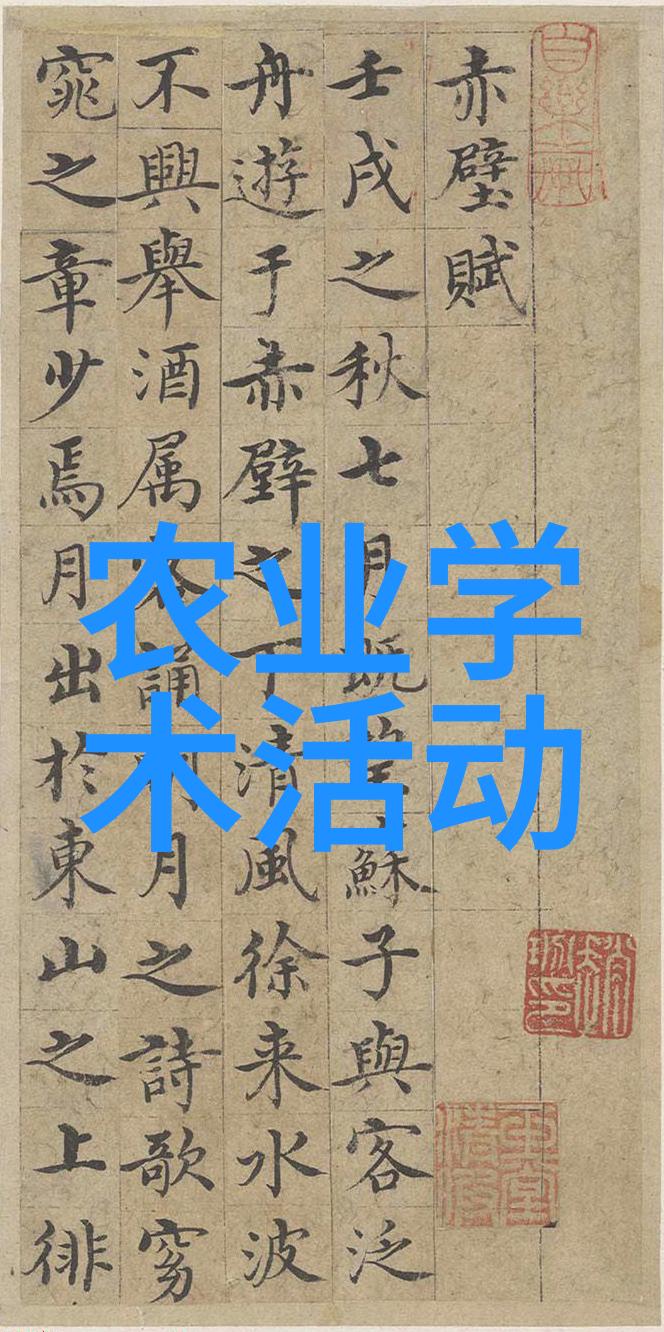 赤壁賦
壬戌之秋七月既望蘇子與客泛
舟遊于赤壁之下清風徐来水波
不興舉酒属客誦明月之詩歌窈
窕之章少焉月出於東山之上徘
农业学
术活动